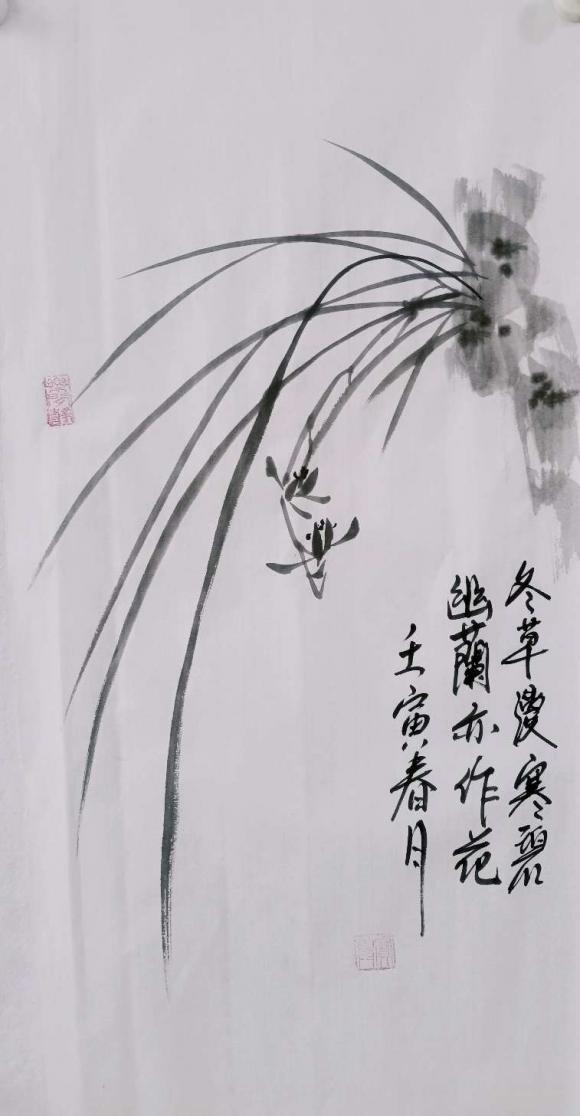 冬草漫寒碧
幽蘭亦作花
壬寅春月